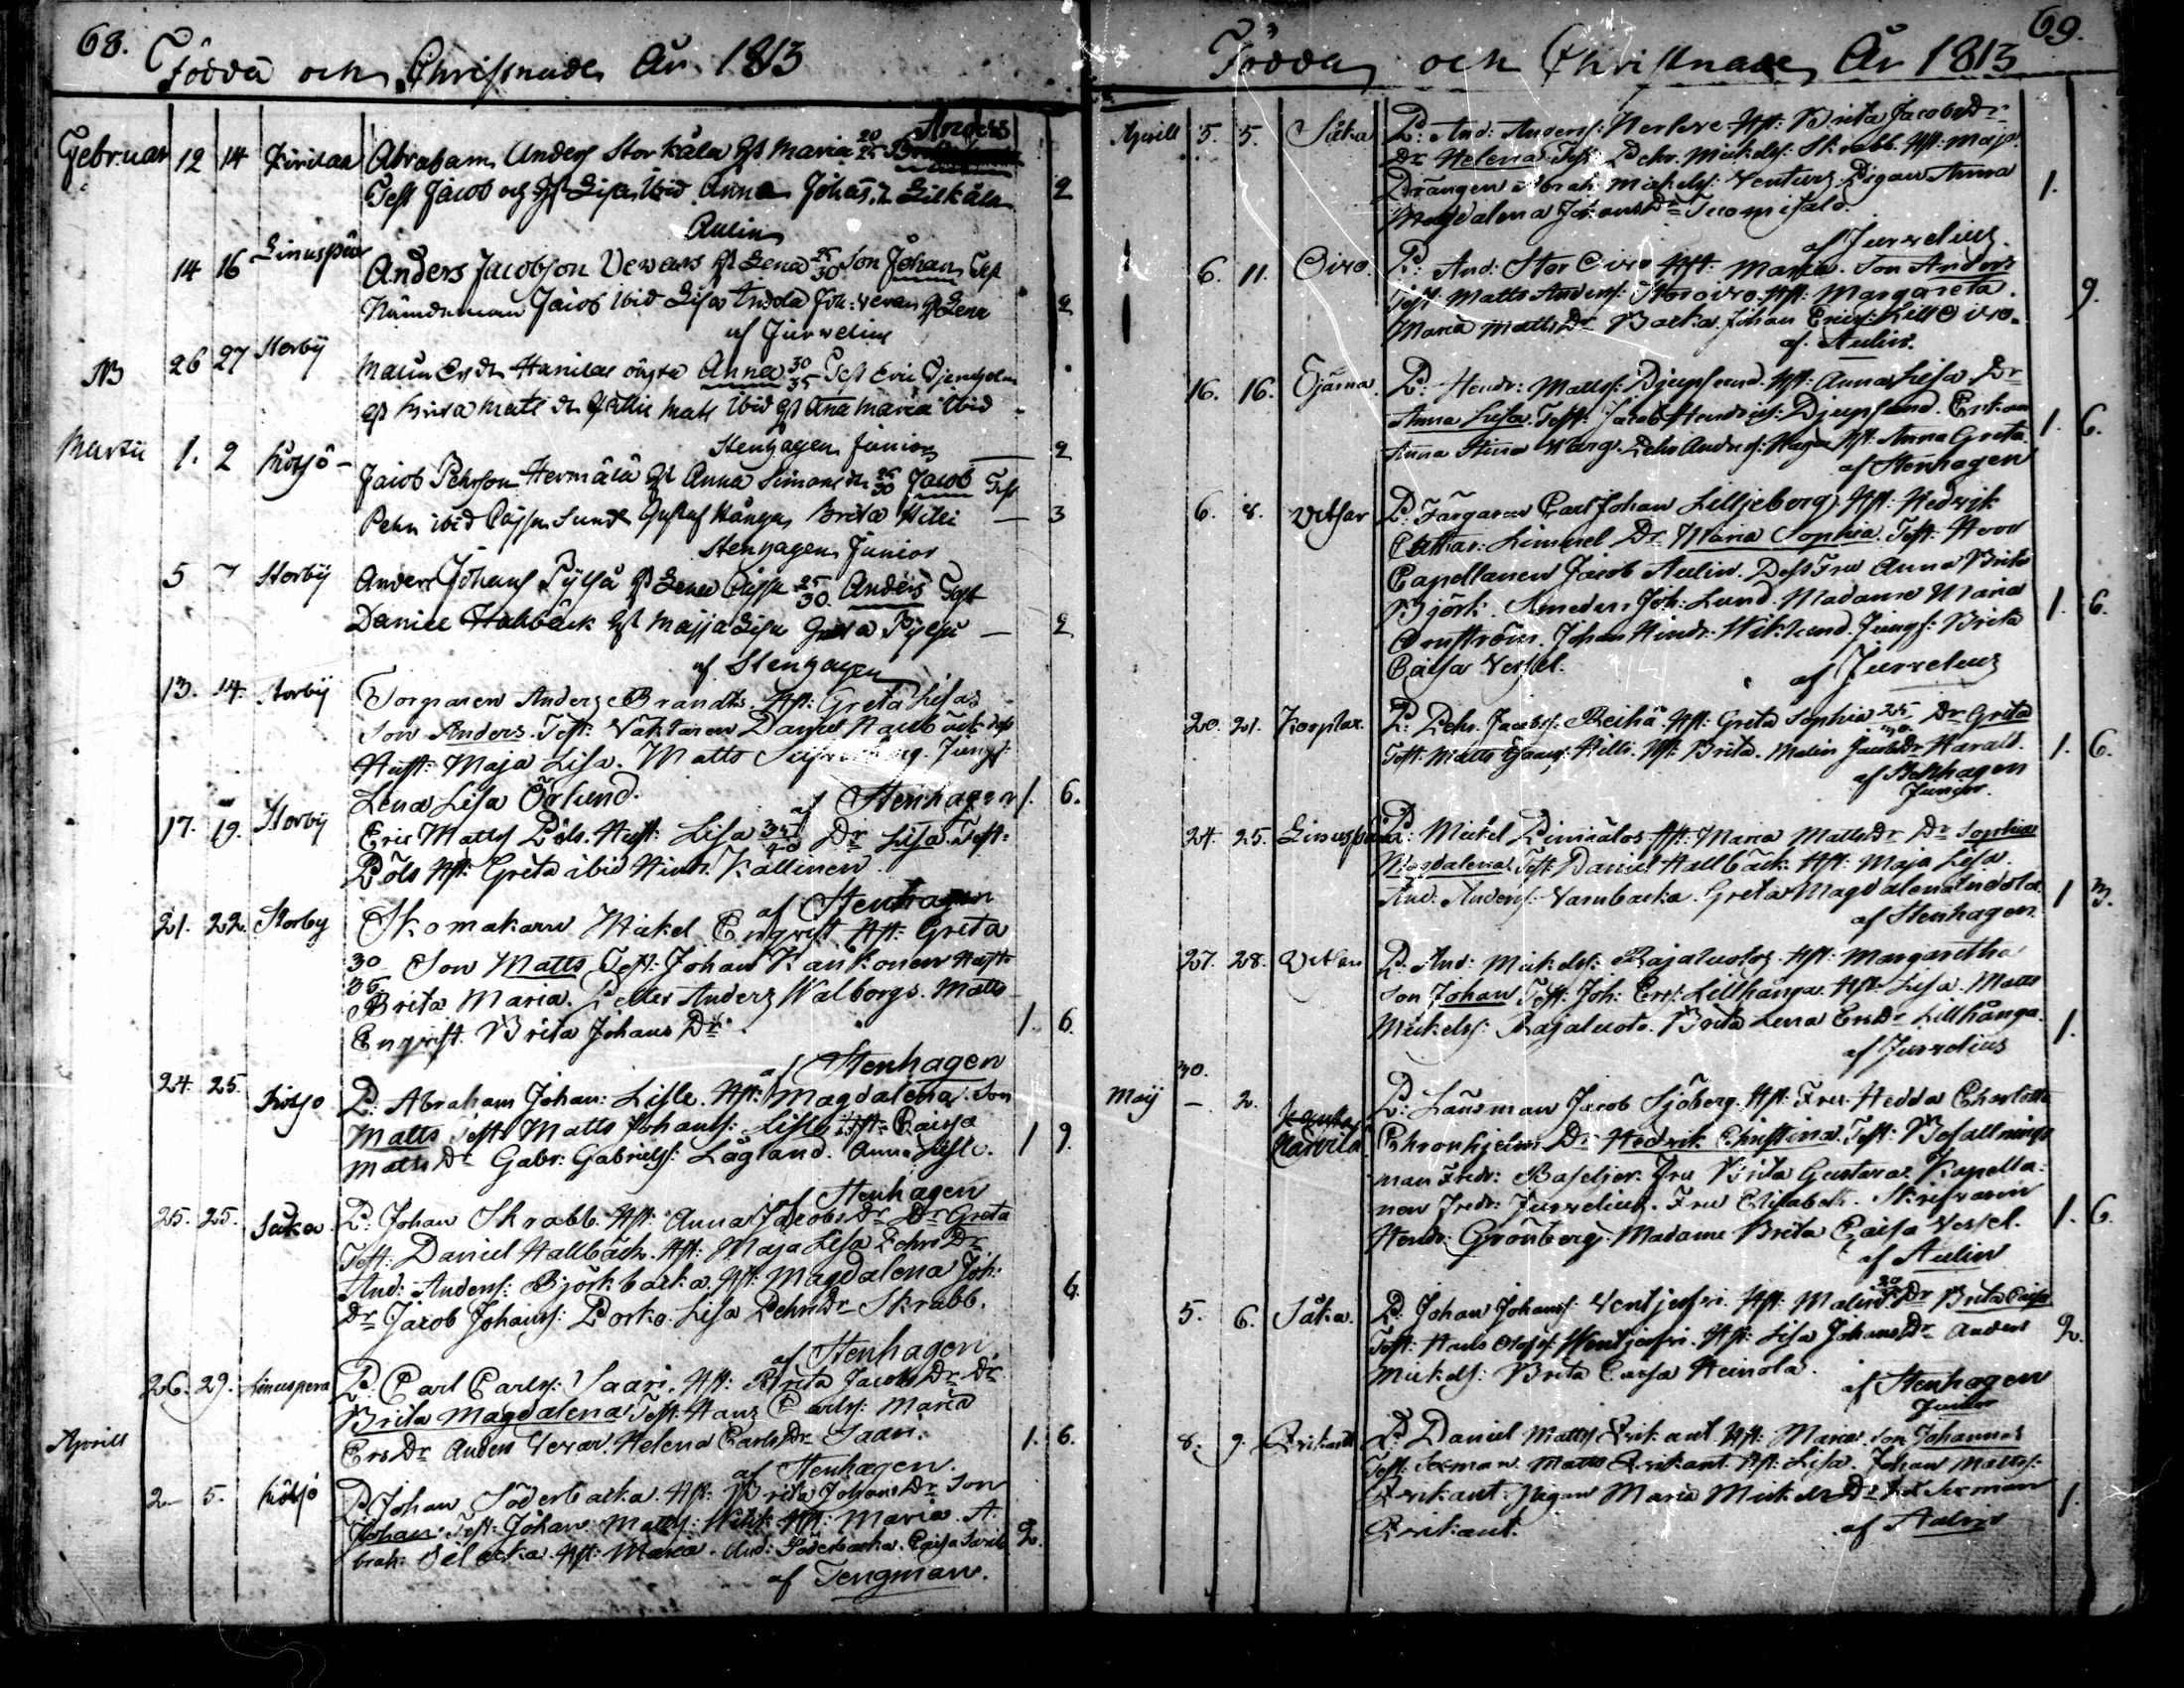 68.
Födda och Christnade År 1813
Anders
Februari 12 14 Abraham Anders Storkåla Hst Maria 20 25
Test Jacob och Hst Lisa ibid Anna Johas. Lilkåla 2
Aulin
14 16 Anders Jacobson Vevars Hst Lena 25 30 Son Johan Test
Nämdeman Jacob ibid Lisa Hst Lena 2
af Jurvelius
NB 26 27 Storby Anna 30 35 Test Eric
Hst Mats ibid Hst Ana Maria ibid
Stenhagen Junior 2
Martii 1. 2 Kutsjö Jacob Pehrson Hermälä Hst Anna Simons dr 25 30 Jacob Test
Pehr ibid Cajsa Sund Gustaf Hånga Brita Hilli 3
Stenhagen Junior
5 7 Storby Anders Johans Pylsy Hst Lena Cajsa 25 30. Anders Test
Daniel Hallbäck Hst Maja Lisa Greta Pylsy 2
af Stenhagen
13. 14. Storby Torparen Anders Brandt. Hst: Greta Lisa
Son Anders. Test: Vaktaren Daniel Hallbäck dess
Hust: Maja Lisa. Matts Jungf:
Lena Lisa Örlund. af Stenhagen 1. 6.
17. 19. Storby Eric Matts Pöls. Hust: Lisa 35 40 Dr Lisa. Test:
Pöls Hst: Greta ibid Hindr. Kallinen.
af Stenhagen
21. 22. Storby Skomakare Mickel Engqvist Hst: Greta
30 35. Son Matts Test: Johan Kankonen Hust:
Brita Maria. Petter Anders Walborgs. Matts
Engqvist. Brita Johans Dr. 1. 6.
af Stenhagen
24. 25. Kutsjö B: Abraham Johan: Lisle. Hst: Magdalena. Son
Matts Test: Matts Johanss: Lisle Hst: Caissa
Matts Dr Gabr: Gabrielss: Lågland. Anna Lisle. 1 9.
af Stenhagen
25. 25. Såka B: Johan Skrabb. Hst: Anna Jacobs Dr Dr Greta
Test: Daniel Hallbäck. Hst: Maja Lisa Pehrs Dr
And: Anderss: Björkbacka. Hst: Magdalena Joh:
Dr Jacob Johanss: Porko. Lisa Pehrs Dr Skrabb. 6.
af Stenhagen
26. 29. Linuspera B: Carl Carlss: Saari. Hst: Brita Jacobs Dr Dr
Brita Magdalena Test: Hans Carlss: Maria
Aprill Ers Dr Anders Vevar. Helena Carls Dr Saari. 1. 6.
af Stenhagen.
2 5. Kutsjö B Johan Söderbacka. Hst: Brita Johans Dr Son
Johan. Test: Johan Matts: Hst: Maria. A
brah: Hst: Maria. And: Söderbacka. Caisa 2.
af Tengman.
69.
Födda och Christnade År 1813
Aprill 5. 5. Såka B: And: Anderss: Hst: Brita Jacobs Dr
Dr Helena Test: Pehr Mickelss: Skrabb. Hst: Maja.
Drängen Abrah: Mickelss: Ventus Pigan Anna
Magdalena Johans Dr Tuomisalo. 1.
af Jurvelius.
6. 11. Oivo. B: And: Stor Oivo Hst: Maria. Son Anders
Test: Matts Anderss: Storoivo. Hst: Margareta.
Maria Matts Dr Backa. Johan Ericss: Lill Oivo. 9.
af Aulin.
16. 16. Öjärna. B: Hendr: Matts: Djupsund. Hst: Anna Lisa Dr
Anna Lisa. Test: Jacob Hendricss: Djupsund. Enkan
Anna Stina Warg. Pehr Anderss: Haga Hst: Anna Greta. 1. 6.
af Stenhagen
6. 8. Vitsar B: Färgaren Carl Johan Lilljeberg. Hst: Hedvik
Cathar: Limnel Dr Maria Sophia. Test: Herr
Capellanen Jacob Aulin. Dess Fru Anna Brita
Björk. Smeden Joh: Lund. Madame Maria
Ornström. Johan Hindr: Wiklund. Jungf: Brita 1. 6.
Caisa Vessel. af Jurvelius
20. 21. Korplax. B: Pehr Jacobss: Reihä Hst: Greta Sophia 25 30. Dr Greta
Test: Matts Isacss: Hilli. Hst: Brita. Malin Jacobs Dr Harald. 1. 6.
af Stenhagen
Junior.
24. 25. Linuspera B: Mickel Pimiälos. Hst: Maria Matts Dr Dr Sophia
Magdalena. Test: Daniel Hallbäck. Hst: Maja Lisa.
And: Anderss: Varnbacka. Greta Magdalena Indola. 1 3.
af Stenhagen.
27. 28. Vitsar B: And: Mickelss: Rajaluoto. Hst: Margaretha
Son Johan Test: Joh: Erss: Lillhånga. Hst: Lisa. Matts
Mickelss: Rajaluoto. Brita Lena Ers Dr Lillhånga. 1.
af Jurvelius
30.
Maij 2. Karvila B: Länsman Jacob Sjöberg. Hst: Fru Hedda Charlotta
Ehronhjelm Dr Hedvik Christina. Test: Befallnings
man Fredr: Baseljer. Fru Brita Gustava. Kapella-
nen Fredr: Jurvelius. Fru Elisabeth. Skrifvaren
Hendr: Grönberg. Madame Brita Caisa Vessel. 1. 6.
af Aulin
5. 6. Såka. B: Johan Johanss: Ventjesari. Hst: Malin Dr Brita Caisa
Test: Hans Olofss: Wentjesari. Hst: Lisa Johans Dr Anders 2.
Mickelss: Brita Caisa Heinola.
af Stenhagen
Junior
8. 9. Rrikant B: Daniel Matts Rrikant Hst: Maria. Son Johannes
Test: Sexman Matts Rrikant. Hst: Lisa. Johan Mattss:
Rrikant. Pigan Maria Mickels Dr Åkerman 1.
Rrikant. af Aulin